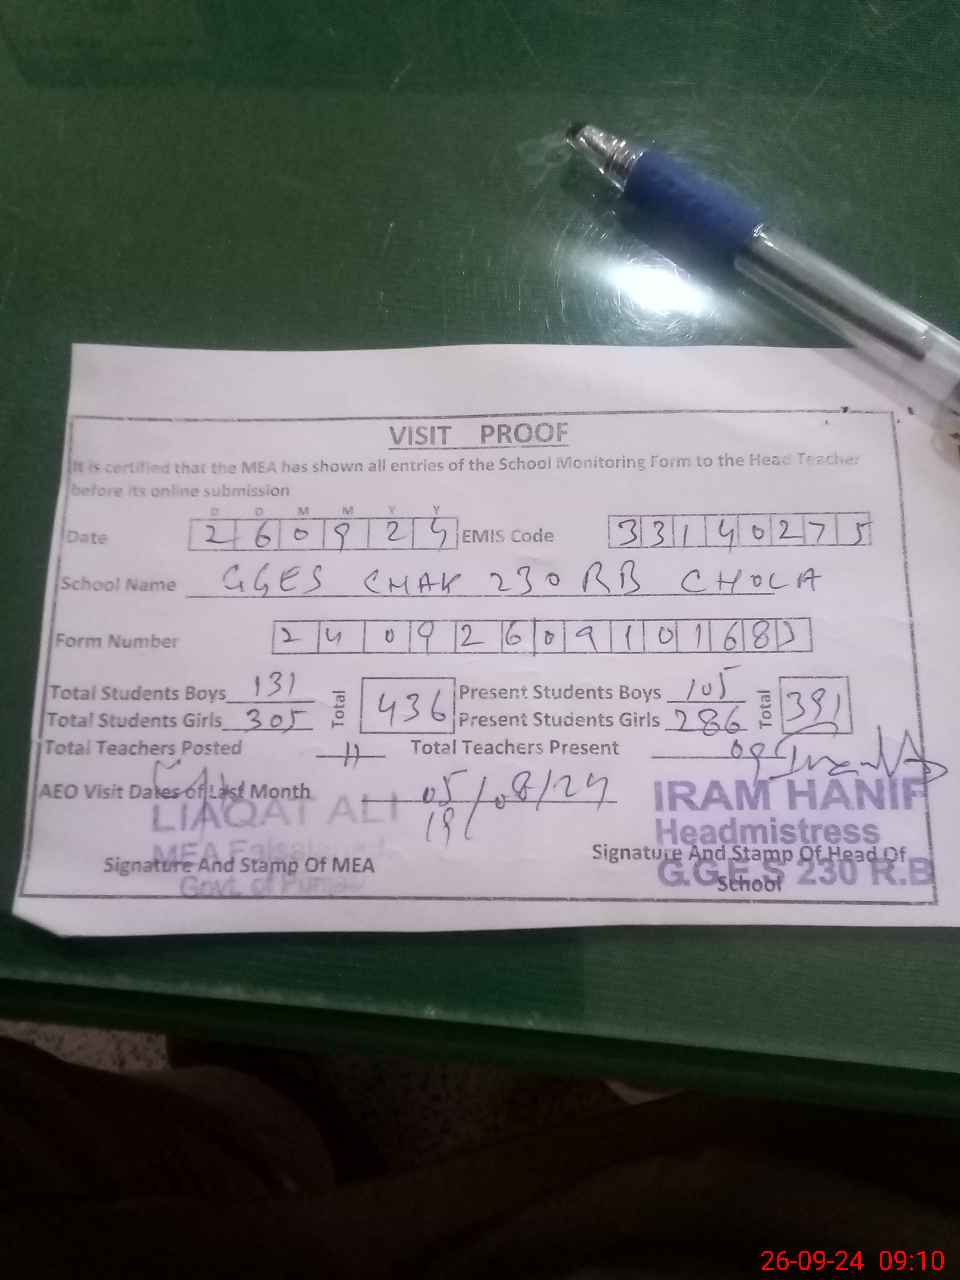 VISIT PROOF
It is certified that the MEA has shown all entries of the School Monitoring Form to the Head Teacher
before its online submission
D D M M Y Y
Date 260924 EMIS Code 33140275
School Name GGES CHAK 230 RB CHOLA
Form Number 24092609101683
Total Students Boys 131 Total 436 Present Students Boys 105 Total 391
Total Students Girls 305 Present Students Girls 286
Total Teachers Posted 11 Total Teachers Present 09
AEO Visit Dates of Last Month 05/08/24
19/
LIAQAT ALI
MEA Faisalabad
Govt. of Punjab
Signature And Stamp Of MEA
IRAM HANIF
Headmistress
G.G.E.S 230 R.B
Signature And Stamp Of Head Of
School
26-09-24 09:10